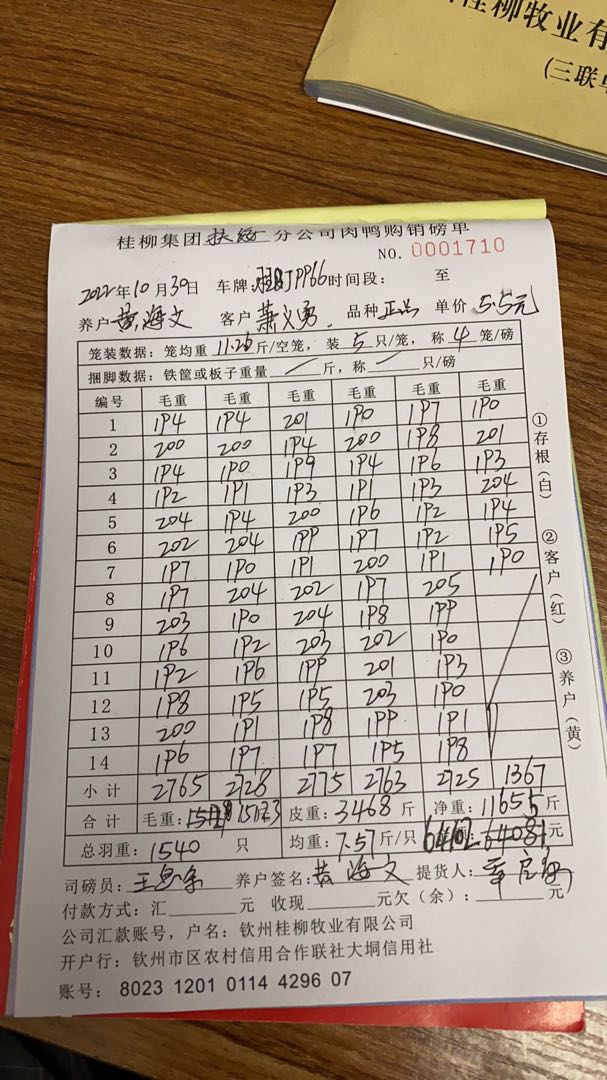 桂柳牧业有
(三联单
桂柳集团扶绥分公司肉鸭购销磅单
NO. 0001710
2022年10月30日 车牌: 时间段: 至
养户黄海文 客户萧义勇 品种正品 单价5.5元
笼装数据: 笼均重11.26斤/空笼, 装5只/笼, 称4笼/磅
捆脚数据: 铁筐或板子重量 斤, 称 只/磅
编号 毛重 毛重 毛重 毛重 毛重 毛重
1 194 194 201 190 197 190
2 200 200 194 200 198 201
3 194 190 199 194 196 193
4 192 191 193 191 193 204
5 204 194 200 196 192 194
6 202 204 199 197 192 195
7 197 190 191 200 191 190
8 197 204 202 197 205
9 203 190 204 198 199
10 196 192 203 202 190
11 192 196 199 201 193
12 198 195 195 203 190
13 200 191 198 199 191
14 196 197 197 195 198
小计 2765 2728 2775 2763 2725 1367
合计 毛重: 15123 皮重: 3468斤 净重: 11655斤
总羽重: 1540 只 均重: 7.57斤/只 元
司磅员: 养户签名: 黄海文 提货人:
付款方式: 汇 元 收现 元欠(余): 元
公司汇款账号, 户名: 钦州桂柳牧业有限公司
开户行: 钦州市区农村信用合作联社大垌信用社
账号: 8023 1201 0114 4296 07
①存根(白) ②客户(红) ③养户(黄)